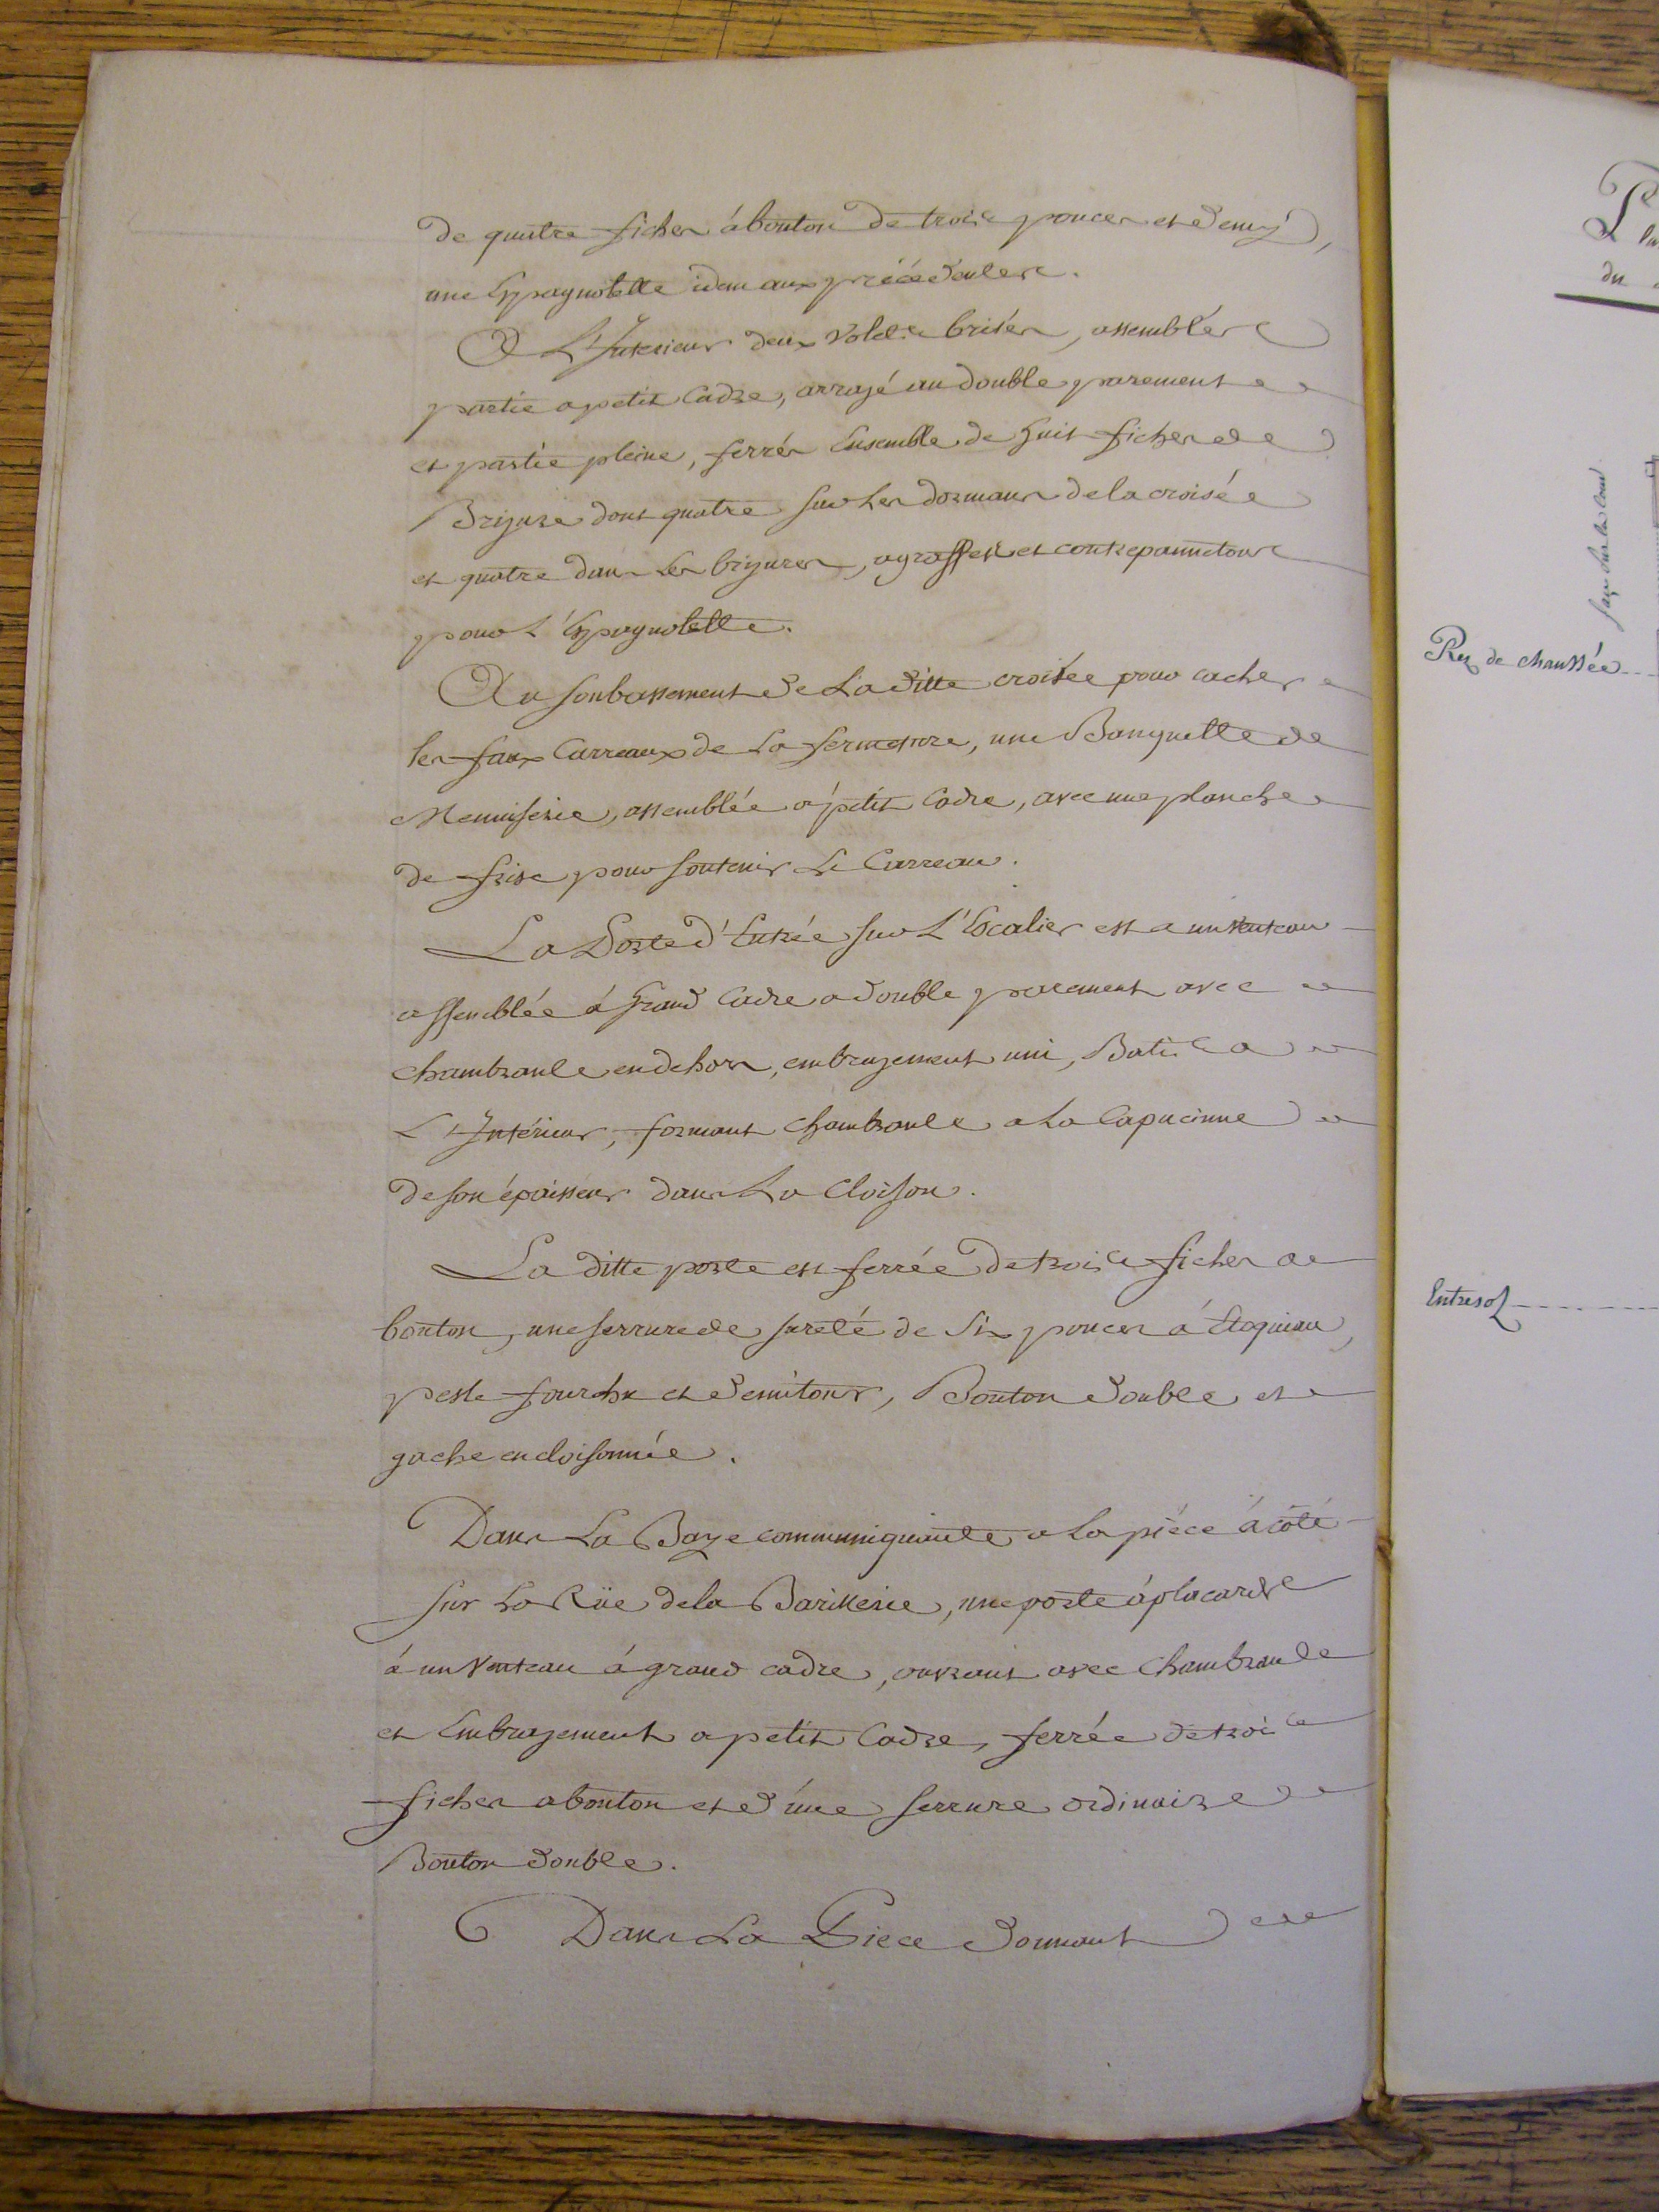 de quatre fiches à bouton de trois pouces et demy,
une Espagnolette idem aux précédentes.
A L'Interieur deux Volets brisés, assemblés
partie a petit Cadre, arrazé au double parement
et partie pleine, ferrés Ensemble de huit fiches de
Brizure dont quatre sur Les dormans de la croisée
et quatre dans Les brizures, agraffes et contrepannetons
pour L'Espagnolette.
Au soubassement de La ditte croisée pour cacher
les faux Carreaux de La fermeture, une Banquette de
Menuiserie, assemblée a petit Cadre, avec une planche
de frise pour soutenir Le Carreau.
La Porte d'Entrée sur L'Escalier est a un Venteau
assemblée à Grand Cadre a double parement avec
chambranle en dehors, embrazement uni, Batis a
L'Intérieur, formant Chambranle a La Capucinne
de son épaisseur dans La Cloison.
La ditte porte est ferrée de trois fiches a
bouton, une serrure de sureté de Six pouces à Etoquiau,
pesle fourchu et demitour, Bouton double et
gache encloisonnée.
Dans La Baye communiquante a La pièce à côté
sur La Rüe de la Barillerie, une porte à placard
à un Venteau à grand cadre, ouvrant avec Chambranle
et Embrazement a petit Cadre, ferrée de trois
fiches a bouton et d'une serrure ordinaire
Bouton double.
Dans La Piece donnant
du
face sur la Cour
Rez de chaussée
Entresol